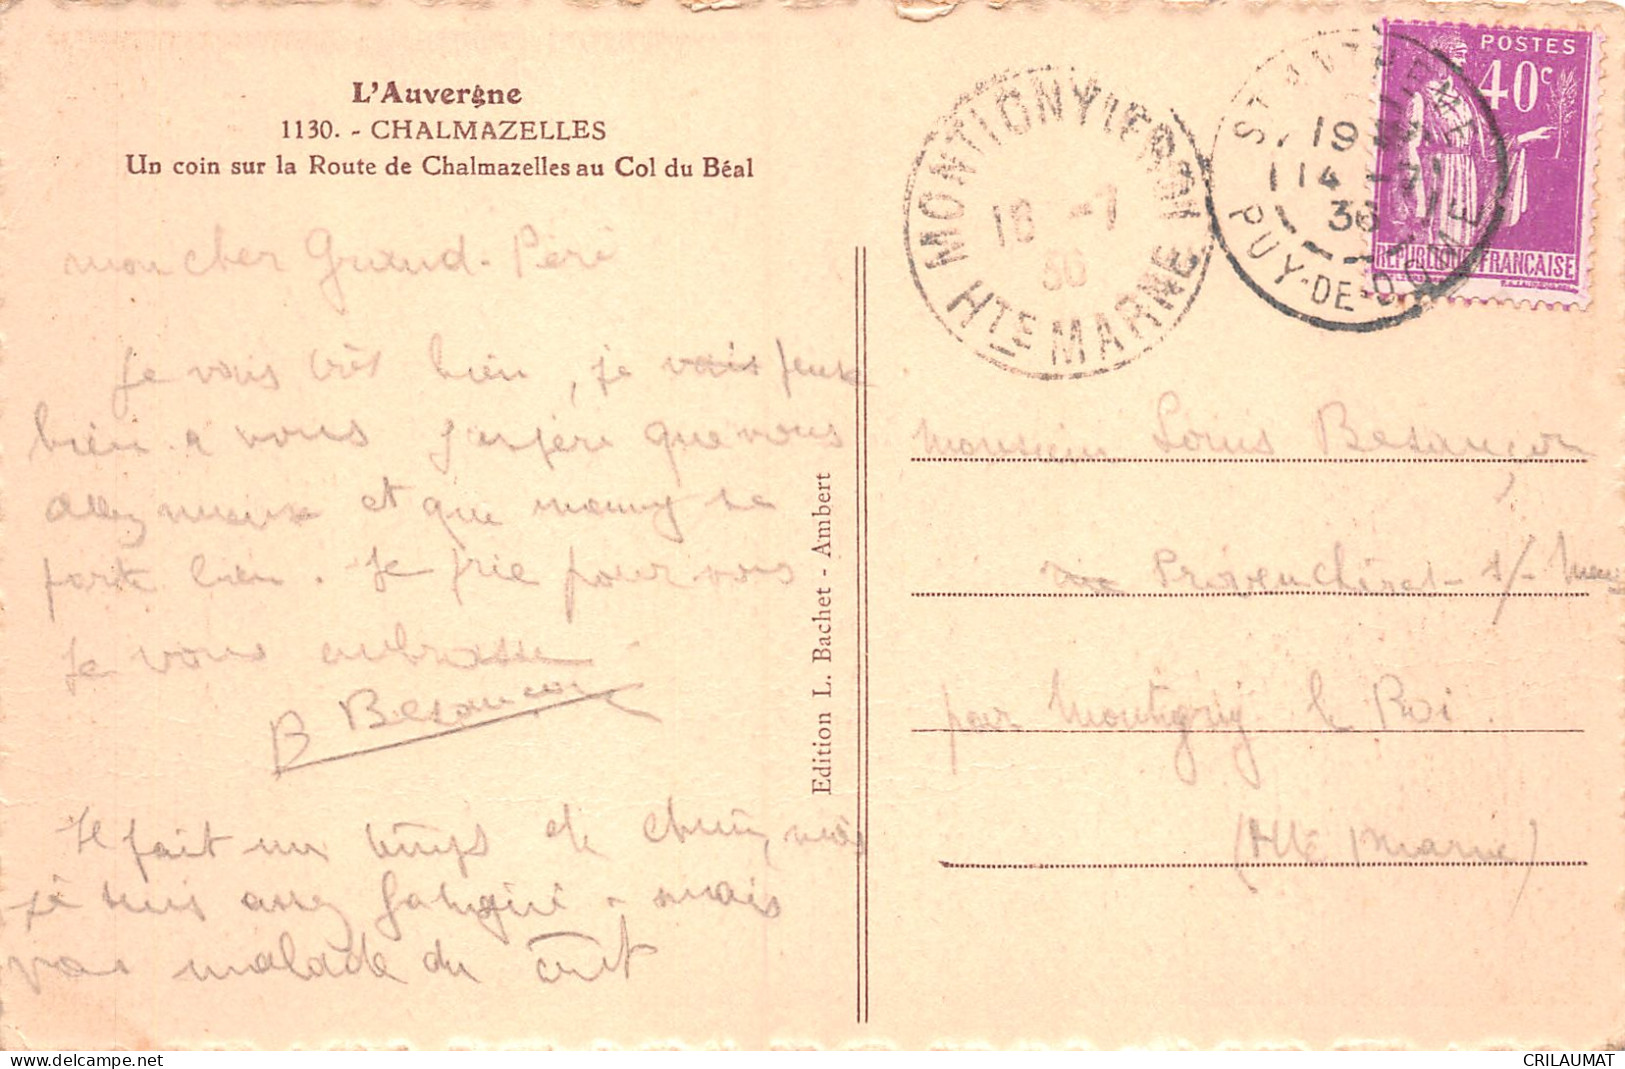 L'Auvergne
1130. - CHALMAZELLES
Un coin sur la Route de Chalmazelles au Col du Béal
mon cher Grand-Péré
Je vais très bien, je vais pense
bien a vous J'espère que vous
allez mieux et que mamy se
porte bien. Je prie pour vous
Je vous embrasse
B Besançon
Il fait un temps de chien, mais
je suis assez fatigué - mais
pas malade du tout
Edition L. Bachet - Ambert
MONTIGNY LE ROI
16 -7
36
HTE MARNE
ST ANTHEME
19
14 - 7
36
PUY-DE-DOME
POSTES
40c
REPUBLIQUE FRANÇAISE
Monsieur Louis Besançon
Provenchères - s/- Meuse
par Montigny le Roi.
(Hte Marne)
CRILAUMAT